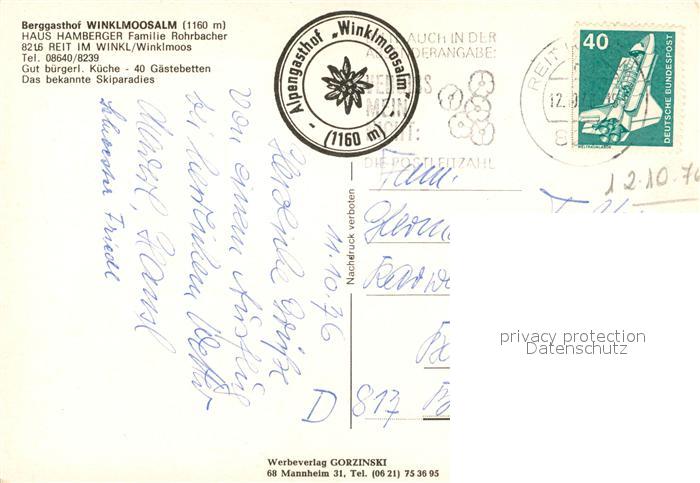 Berggasthof WINKLMOOSALM (1160 m)
HAUS HAMBERGER Familie Rohrbacher
8216 REIT IM WINKL/Winklmoos
Tel. 08640/8239
Gut bürgerl. Küche - 40 Gästebetten
Das bekannte Skiparadies
Alpengasthof „Winklmoosalm"
- (1160 m) -
AUCH IN DER
DIE POSTLEITZAHL
REIT
40
DEUTSCHE BUNDESPOST
12.10.76
11.10.76
Herzliche Grüße
von einem Ausflug
Schwester Friedl
Nachdruck verboten
Fam.
D 817
privacy protection
Datenschutz
Werbeverlag GORZINSKI
68 Mannheim 31, Tel. (06 21) 75 36 95